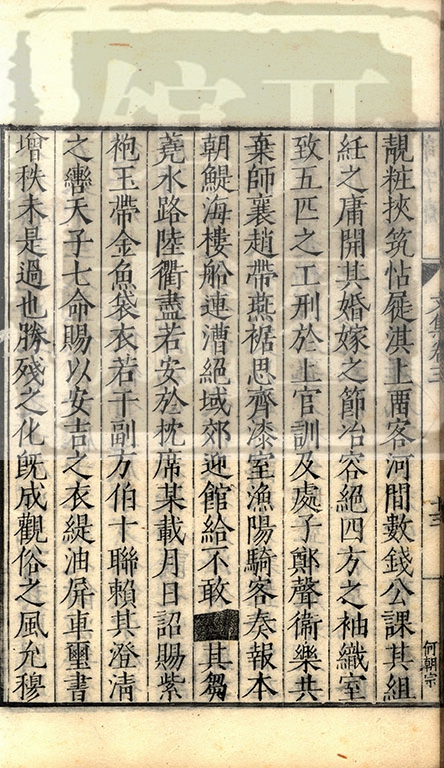 靚粧挾筑怗屣淇上覀客河間數錢公課其組
紝之庸開其婚嫁之節冶容絕四方之袖織室
致五匹之工刑於上官訓及處子鄭聲衞樂共
棄師襄趙帶燕裾思齊漆室漁陽騎客奏報本
朝鯷海樓船連漕絕域郊迎館給不敢其芻
蕘水路陸衢盡若安於枕席某載月日詔賜紫
袍玉帶金魚袋衣若干副方伯十聯賴其澄淸
之轡天子七命賜以安吉之衣緹油屏車璽書
增秩未是過也勝殘之化旣成觀俗之風允穆
何朝宗